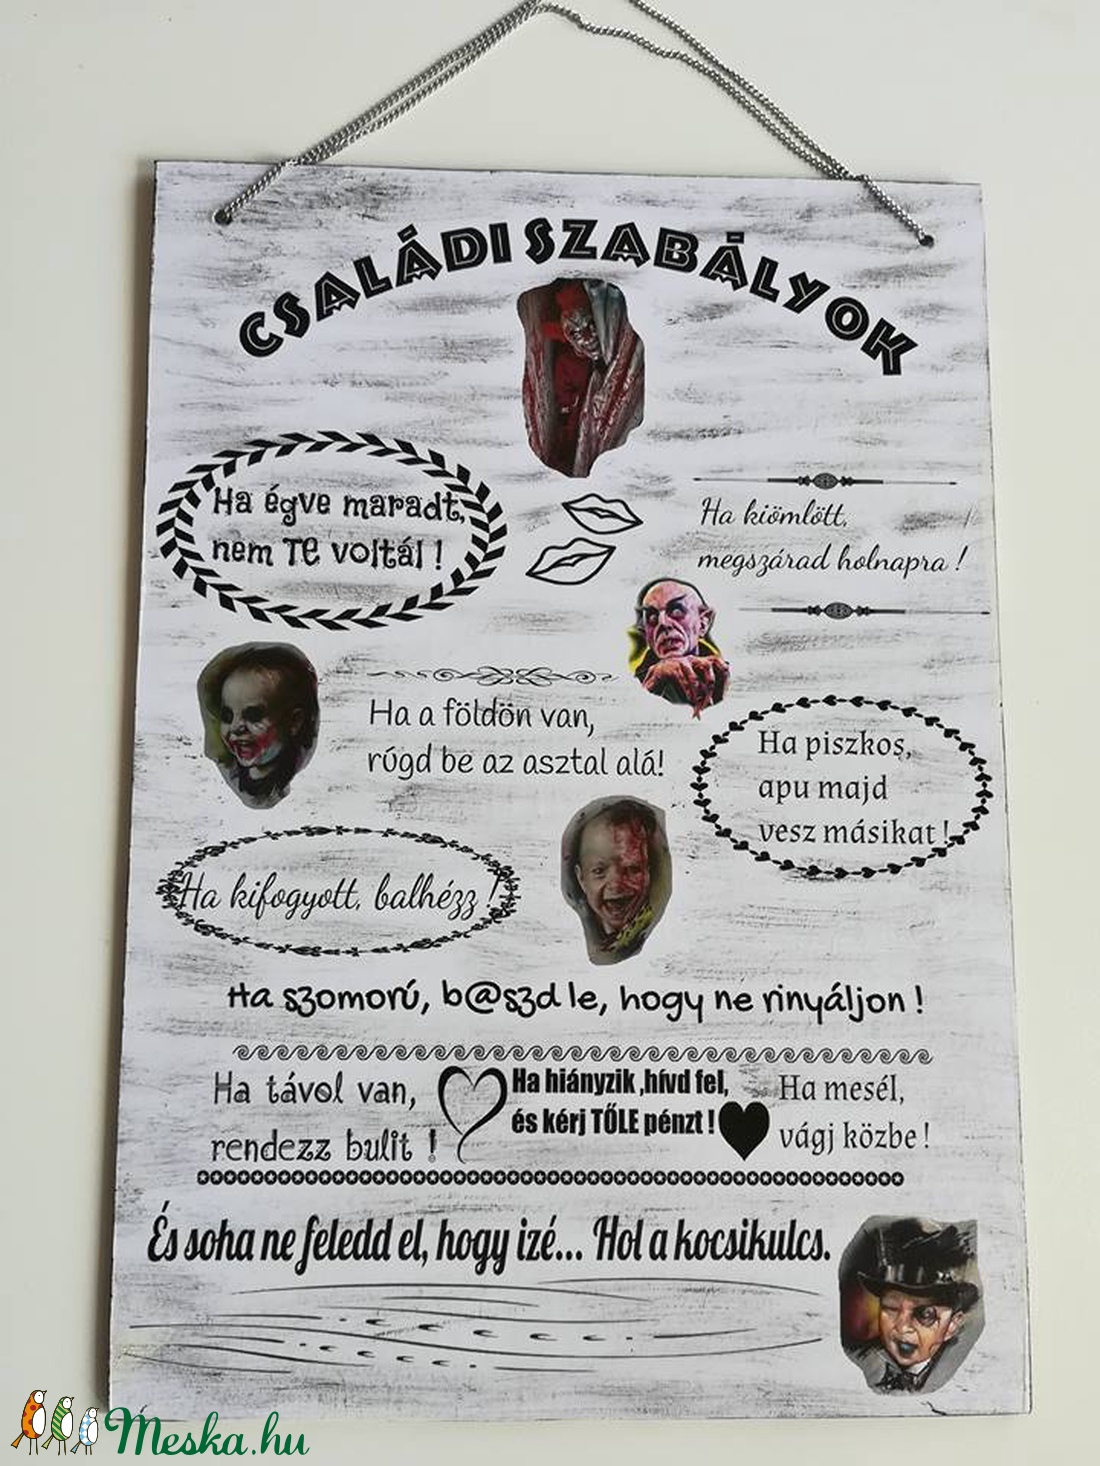 CSALÁDI SZABÁLYOK
Ha égve maradt,
nem TE voltál !
Ha kiömlött,
megszárad holnapra !
Ha a földön van,
rúgd be az asztal alá!
Ha piszkos,
apu majd
vesz másikat !
Ha kifogyott, balhézz !
Ha szomorú, b@szd le, hogy ne rinyáljon !
Ha távol van,
rendezz bulit !
Ha hiányzik ,hívd fel,
és kérj TŐLE pénzt !
Ha mesél,
vágj közbe !
És soha ne feledd el, hogy izé... Hol a kocsikulcs.
Meska.hu